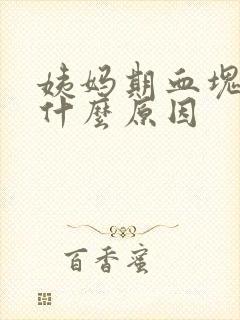 姨妈期血塊
什麽原因
百香蜜